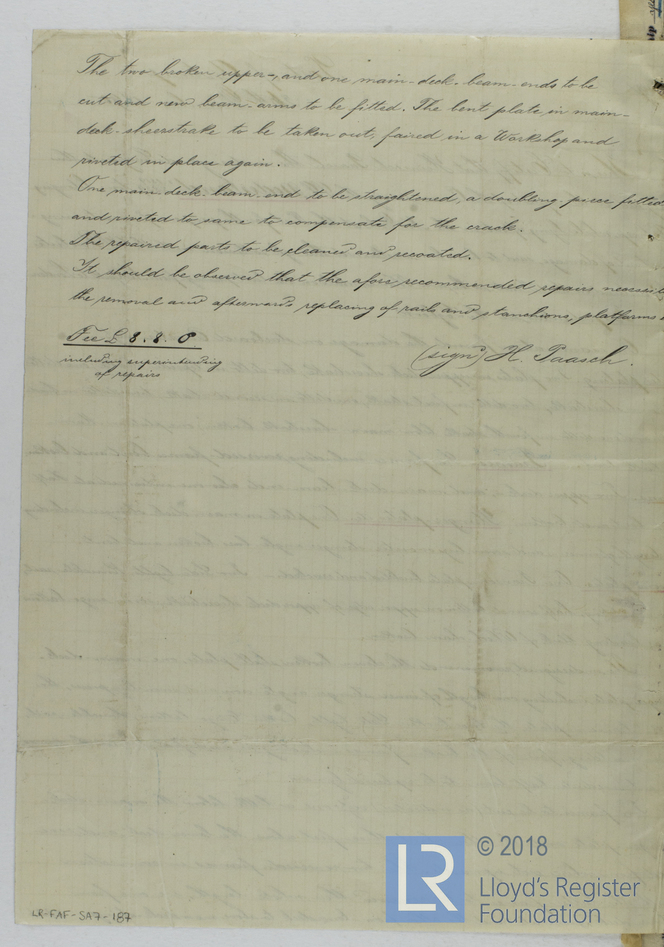 The two broken upper-, and one main-deck-beam-ends to be
cut and new beam-arms to be fitted. The bent plate in main-
deck-sheerstrake to be taken out, faired in a Workshop and
riveted in place again.
One main-deck-beam-end to be straightened, a doubling piece fitted
and riveted to same to compensate for the crack.
The repaired parts to be cleaned and recoated.
It should be observed that the afore recommended repairs
the removal and afterwards replacing of rails and stanchions, platforms
Fee £ 8. 8. 0
including superintending
of repairs
(sign) H. Paasch.
LR-FAF-SA7-187
LR
© 2018
Lloyd's Register
Foundation